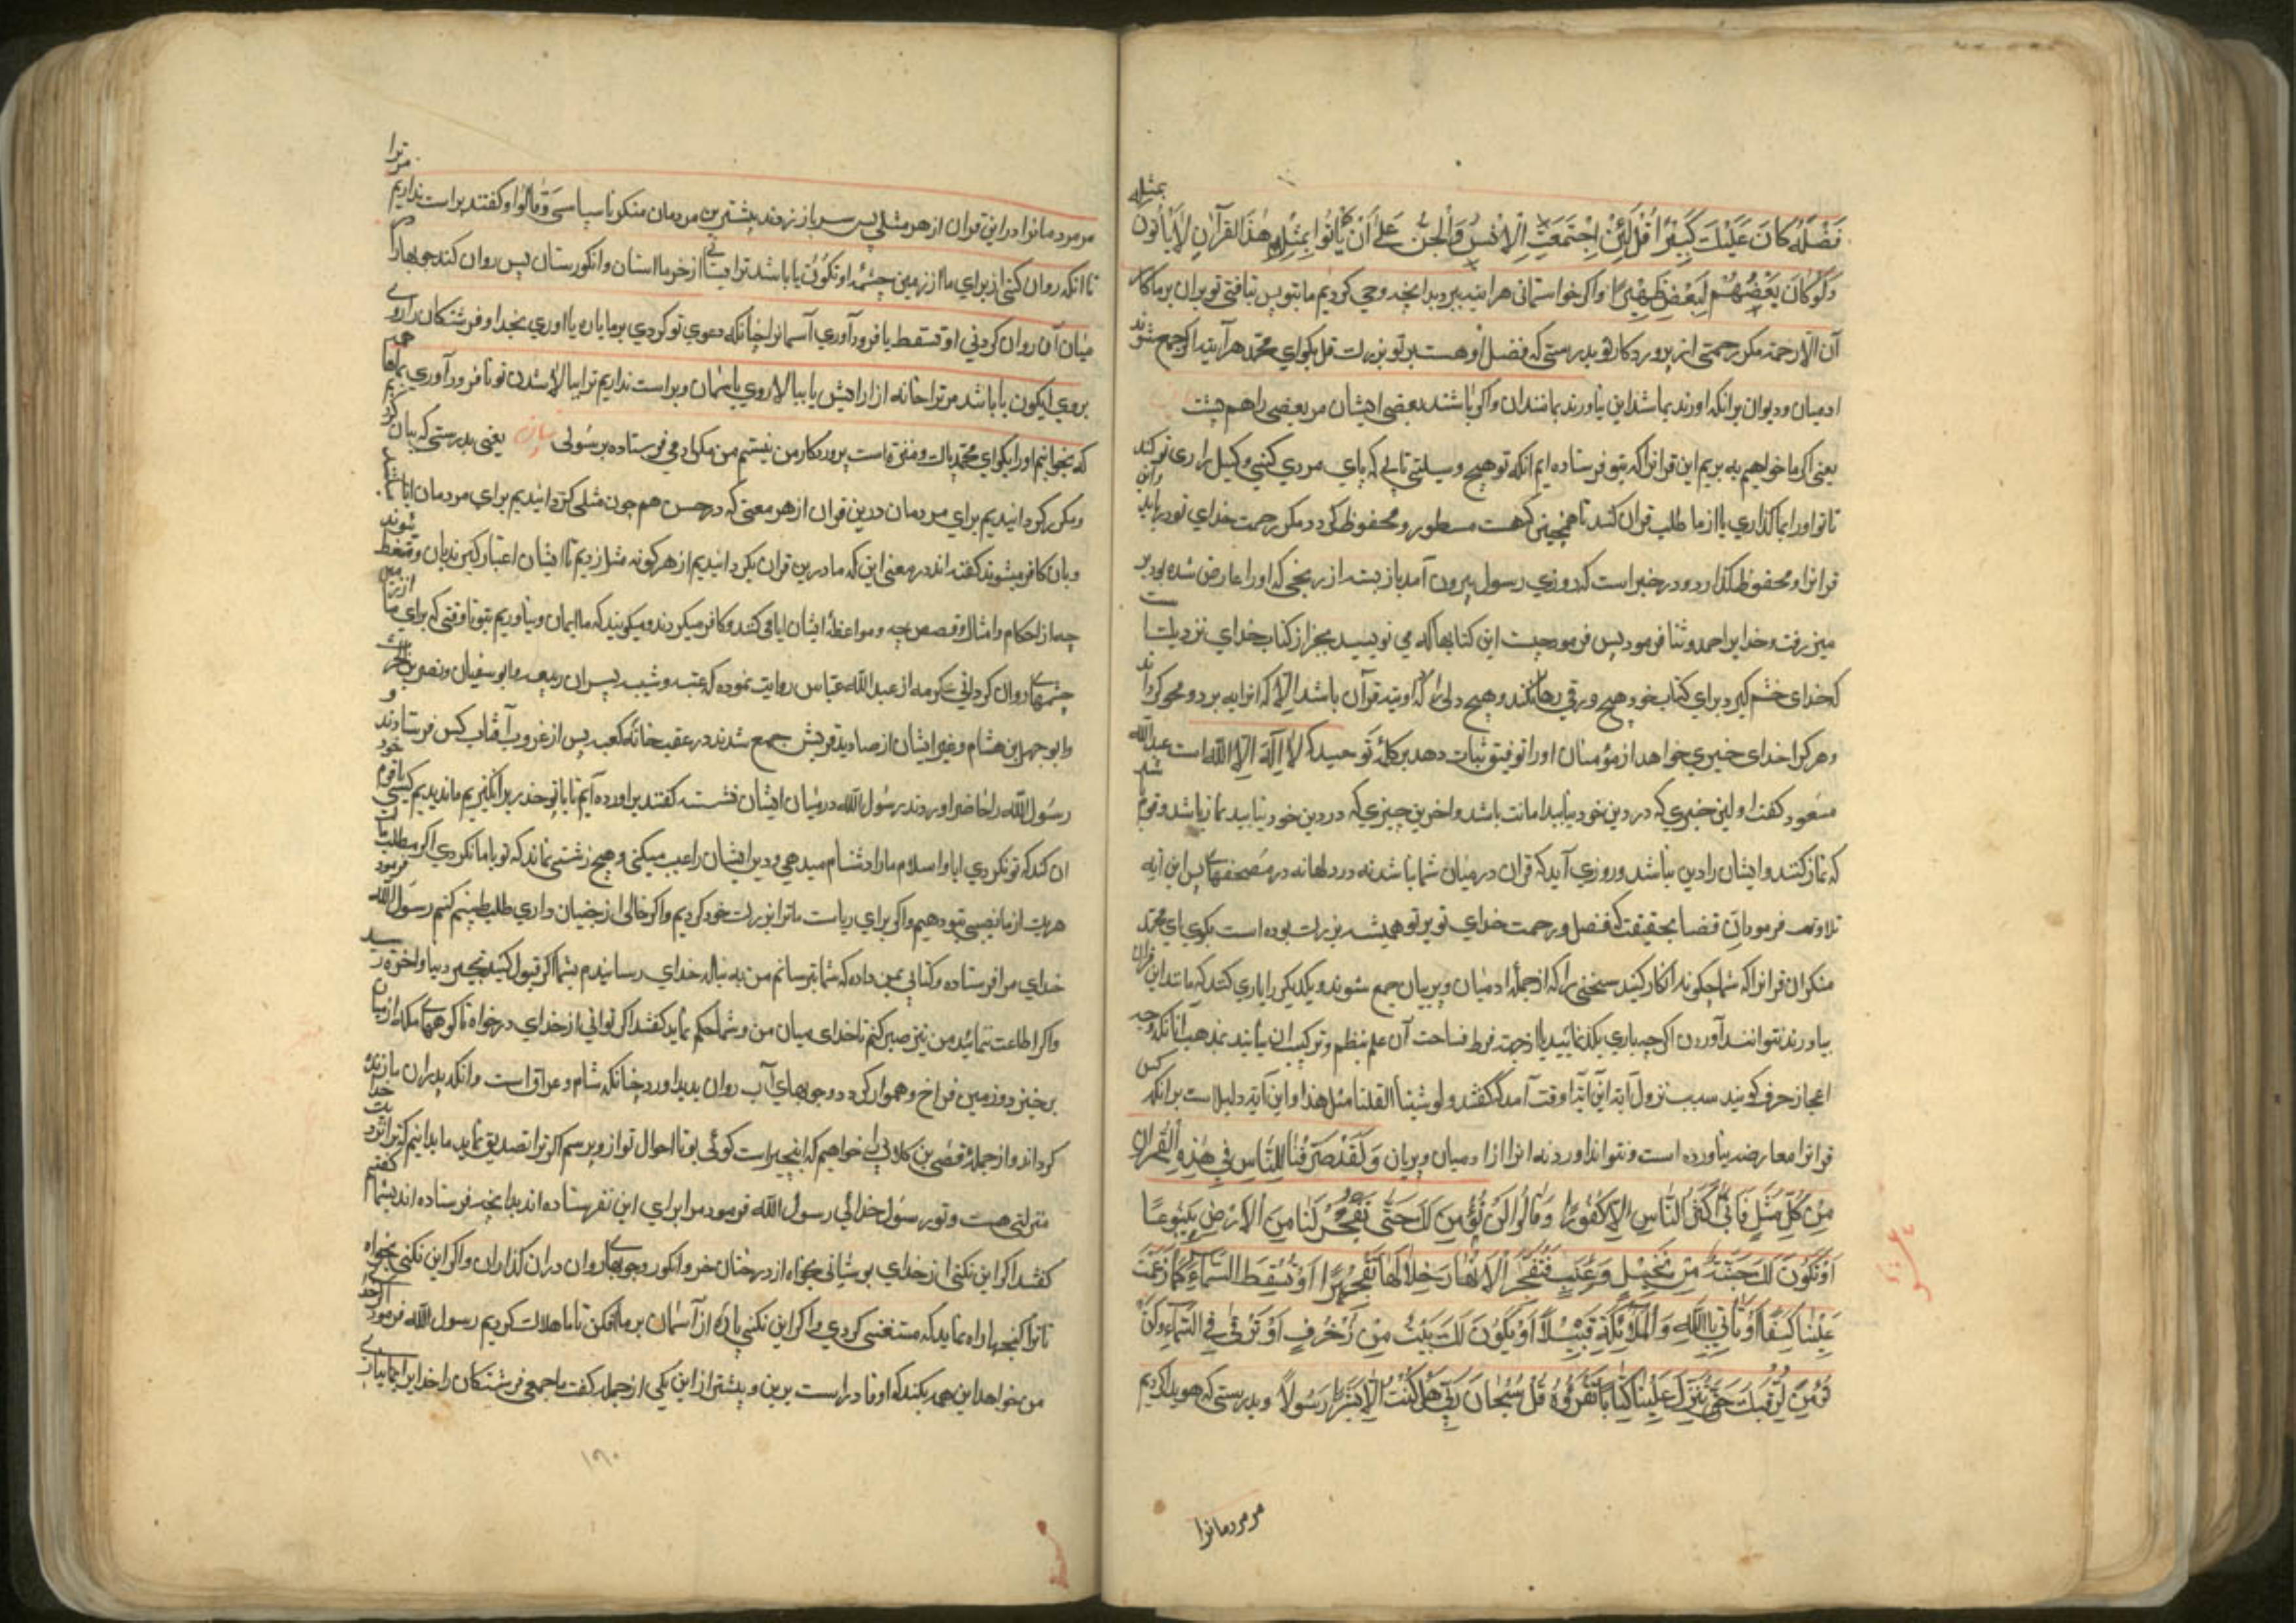 فَضْلَهُ كَانَ عَلَيْكَ كَبِيرًا قُلْ لَئِنْ اِجْتَمَعَتِ الْاِنْسُ وَالْجِنُّ عَلَى أَنْ يَأْتُوا بِمِثْلِ هٰذَا القُرآنِ لَا يَأْتُونَ بمثله
وَلَوْ كَانَ بَعْضُهُمْ لِبَعْضٍ ظَهِيْرًا واكر خواستمانی هر اینه ببرد بدانچه وحی کردیم ما بتو پس نیافتی تو بران بر ما
آن الا رحمة مکر رحمتی از پروردکار تو بدرستی که فضل او هست بر تو بزرك قل بکو ای محمد هر آینه اکر جمع شوند
ادمیان ودیوان بر انکه اورند بماننداین نیاورند بمانندان واکر باشند بعضی ایشان مر بعضی را هم پشت
یعنی اکر ما خواهیم به بریم این قرانرا که بتو فرستاده ایم انکه تو هیچ وسیلتی نیابی که پای مردی کنی وکیل
تا تو اورا بما کذاری یا از ما طلب قران کند تا همچنین که هست مسطور ومحفوظ کردد مکر رحمت خدای تو
قرانرا ومحفوظ کذارد ودر خبر است که روزی رسول بیرون آمد باز بسته از رنجی که اورا عارض شده بود بر
منبر رفت وخدایرا حمد وثنا فرمود پس فرمود چیست این کتابها که می نویسید بجز از کتاب خدای نزدیك است
که خدای خشم کیرد برای کتاب خود هیچ ورقی رها نکند وهیچ دلی را که اوبته قرآن باشد الا که انرا به برد ومحو کرداند
وهر کرا خدای خیری خواهد از مؤمنان اورا توفیق ثبات دهد بر کلمه توحید که لا اِلهَ اِلا الله است عبدالله
مسعود کفت اولین خیری که در دین خود نیابید امانت باشد واخرین چیزی که در دین خود نیابید نماز باشد وقوم
که نماز کنند وایشان را دین نباشد وروزی آید که قران در میان شما نباشد نه در دلها نه در مصحفها پس این آیه
تلاوت فرمود ان فضله بحقیقت که فضل ورحمت خدای تو بر تو همیشه بزرك بوده است بکوی ای محمد
منکران قرانرا که شما چکونه انکار کنید سخنی را که از جمله ادمیان وپریان جمع شوند ویکدیکر را یاری کنند که مانند این قران
بیاورند نتوانند آوردن اکرچه یاری یکدیکر نمایند یا از جهة فرط فصاحت آن علم بنظم وترکیب ان نیابند بمذهب انانکه وجه
اعجاز صرف کویند سبب نزول آیه این آیه اوقت آمد که کفتند ولو شئنا لقلنا مثل هذا واین آیه دلیلست بر انکه کس
قرانرا معارضه نیاورده است ونتواند آورد نه انرا از ادمیان وپریان وَلَقَدْ صَرَّفْنَا لِلنَّاسِ فِي هٰذِهِ الْقُرانِ
مِنْ كُلِّ مَثَلٍ فَاَبٰى اَكْثَرُ النَّاسِ اِلَّا كَفُورًا وَقَالُوا لَنْ نُؤْمِنَ لَكَ حَتّٰى تَفْجُرَ لَنَا مِنَ الْاَرْضِ يَنْبُوعًا
اَوْ تَكُوْنَ لَكَ جَنَّةٌ مِنْ نَخِيْلٍ وَعِنَبٍ فَتُفَجِّرَ الْاَنْهَارَ خِلَالَهَا تَفْجِيْرًا اَوْ تُسْقِطَ السَّمَاءَ كَمَا زَعَمْتَ
عَلَيْنَا كِسَفًا اَوْ تَأْتِيَ بِاللّٰهِ وَالْمَلٰئِكَةِ قَبِيْلًا اَوْ يَكُوْنَ لَكَ بَيْتٌ مِنْ زُخْرُفٍ اَوْ تَرْقٰى فِي السَّمَاءِ وَلَنْ
نُؤْمِنَ لِرُقِيِّكَ حَتّٰى تُنَزِّلَ عَلَيْنَا كِتَابًا نَقْرَؤُهُ قُلْ سُبْحَانَ رَبِّي هَلْ كُنْتُ اِلَّا بَشَرًا رَسُولًا وبدرستی که هویدا کردیم
مر مردمانرا
مر مردمانرا در این قران از هر مثلی پس سر باز زدند بیشترین مردمان مکر ناسپاسی وَقَالُوا وکفتند براست نداریم مر ترا
تا انکه روان کنی از برای ما از زمین چشمه اوتکون یا باشد ترا بستانی از خرما استان وانکورستان پس روان کند جویها را در
میان آن روان کردنی او تسقط یا فرود آوری آسمانرا چنانکه دعوی تو کردی بر ما پاره یا اوری بخدا وفرشتکان را
بروی ایکون یا باشد مر ترا خانه از ارایش یا ببالا روی باسمان وبراست نداریم ترا ببالا شدن تو تا فرود آوری بما
که بخوانیم اورا بکو ای محمد پاك ومنزه است پروردکار من نیستم من مکر ادمی فرستاده برسولی یعنی بدرستی که بیان
ومکرر کردانیدیم برای مردمان درین قران از هر معنی که در حسن هم چون مثلی کردانیدیم برای مردمان
وبان کافر میشوند کفته اند در معنی این که ما درین قران بکردانیدیم از هر کونه مثل زدیم تا ایشان اعتبار کیرند بان
چه از احکام وامثال وقصص چه ومواعظ ایشان ابا می کنند وکافر میکردند ومیکویند که ما ایمان نیاوریم بتو تا وقتی که برای ما
چشمهای روان کردانی عکرمه از عبدالله عباس روایت نموده که عتبه وشیبه پسران ربیعه وابو سفیان ونضر بن الحرث
وابو جهل بن هشام وغیر ایشان از صنادید قریش جمع شدند در عقب خانه کعبه پس از غروب آفتاب کس فرستادند و
رسول الله را حاضر اوردند رسول الله در میان ایشان نشسته کفتند بر اورده ایم تا با تو حذر برانکیزیم ما ندیدیم کسی با قوم خود
ان کند که تو کردی ابا واسلام ما را دشنام میدهی ودین ایشان را عیب میکنی وهیچ زشتی نماند که تو با ما نکردی اکر مطلب
هر یك از ما نصیبی بتو دهیم واکر برای ریاست ما ترا بزرك خود کردیم واکر خالی از جنیان داری طلب طبیبی کنیم رسول الله فرمود
خدای مرا فرستاده وکتابی بمن داده که شما برسانم من به نبال خدای رسانیدم بشما اکر قبول کنید بخیر دنیا واخره
واکر اطاعت ننمائید من نیز صبر کنم تا خدای میان من وشما حکم نماید کفتند اکر توانی از خدای درخواه تا کوههای مکه از میان
برخیزد وزمین فراخ وهموار کردد وجویهای آب روان بدید اورد چنانکه شام وعراق است وانکه پدران ما زنده
کرداند واز جمله قصی بن کلاب را خواهیم که راست کوئی بود تا احوال تو از او پرسیم اکر ترا تصدیق نماید ما بدانیم که ترا نزد خدا
منزلتی هست وتو رسول خدائی رسول الله فرمود مرا برای این نفرستاده اند بدانچه فرستاده اند بشما کفتم
کفتند اکر این نکنی از خدای بوستانی بخواه از درختان خرما وانکور وجویهای روان در ان کذاران واکر این نکنی بخواه
تا ترا کنجها راه نماید که مستغنی کردی واکر این نکنی پاره از آسمان بر ما افکن تا ما هلاك کردیم رسول الله فرمود اکر خدا
من خواهد این همه بکند که او قادر است برین وبیشتر از این یکی از جمله کفت ما جمعی فرشتکان را خدایرا
۱۹۰